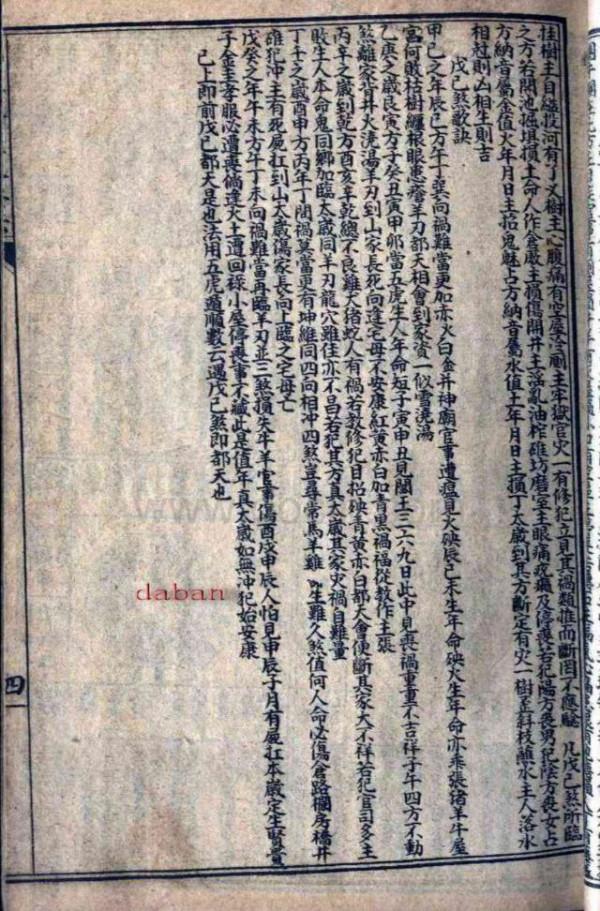 挂樹主自縊投河有了义樹主心腹痛有空屋空廟主牢獄官灾一有修犯立見其禍類推而斷囯不應驗　凡戊己煞所臨
之方若開池掘坭損土命人作倉厫主損傷開井主淫亂油榨碓坊磨室主眼痛疣癩及停喪若犯陽方喪男犯陰方喪女占
方納音屬金值火年月日主招鬼魅占方納音屬水值土年月日主損丁太歲到其方斷定有灾一樹歪斜枝蘸水主人落水
相冠則凶相生則吉
戊己煞歌訣
甲己之年辰巳方午丁巽向禍難當更加赤火白金并神廟官事遭瘟見火殃辰巳未生年命殃火生年命亦乘張猪羊牛屋
宮何敗枯樹纏根眼患瘡羊刃都天相會到家資一似雪澆湯
乙庚之歲艮寅方子癸丑寅甲卯當五虎生人年命短子寅申丑見閻王三六九日此中見喪禍重重不吉祥子午四方不動
煞雞家背井火澆湯羊刃到山家長死向逢宅母不安康紅黄赤白加青黑禍福從教作主張
丙辛之歲到乾方酉亥辛乾總不良雞犬猪蛇人有禍若教修犯目招殃青黄赤白都天會便斷其家大不祥若犯官司多主
敗生人本命鬼同鄉加臨太歲同羊刃龍穴雖佳亦不昌若犯其方真太歲其家灾禍自難量
丁壬之歲酉申方丙年丁閏禍莫當更有坤維同四向相冲四煞豈尋常馬羊雞　生雖久煞值何人命必傷倉路欄房橋井
碓犯冲主有死屍扛到山太歲傷家長向上臨之宅母亡
戊癸之年午未方午丁未向禍難當再臨羊刃並三煞損失牛羊官事傷酉戌申辰人怕見申辰子月有屍扛本歲定生賢
子金主孝服必遭喪倘逢火土遭回祿小屋停喪事不藏此是值年真太歲如無冲犯始安康
已上即前戊己都天是也法用五虎遁順數云遇戊己煞即都天也
daban
四